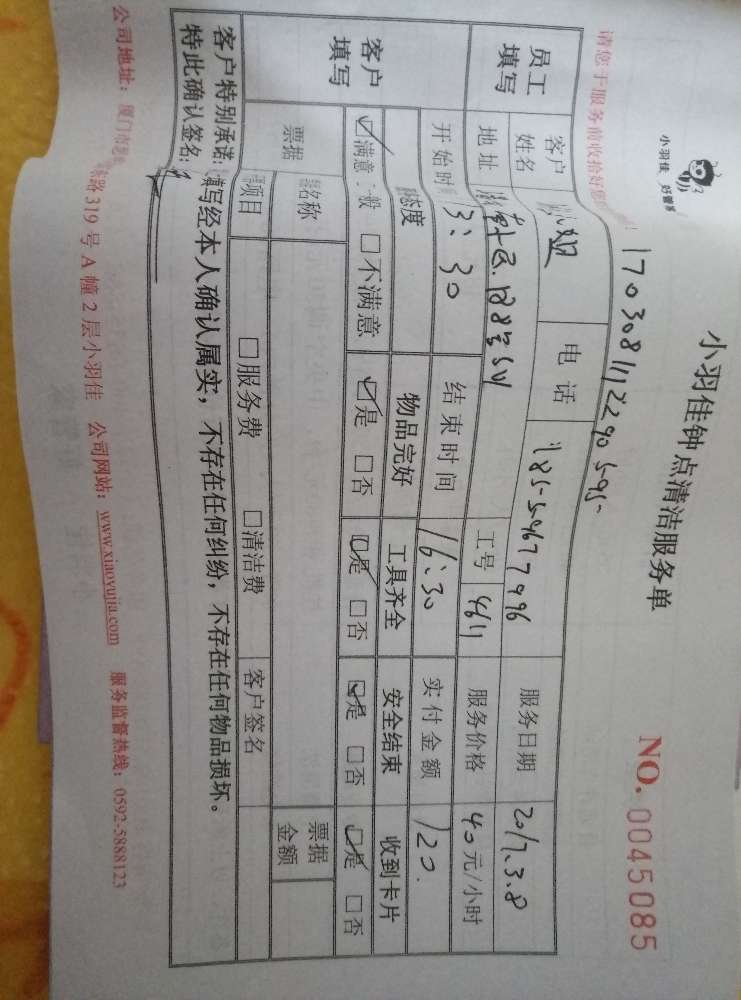 小羽佳 好管家
小羽佳钟点清洁服务单
NO. 0045085
请您于服务前收拾好您
1703081112290595-
员工填写
客户姓名 小姐 电话 185-59677996 服务日期 2017.3.8
地址 工号 4611 服务价格 40元/小时
开始时 13:30 结束时间 16:30 实付金额 120.
客户填写
态度 物品完好 工具齐全 安全结束 收到卡片
☑满意 般 □不满意 ☑是 □否 ☑是 □否 ☑是 □否 ☑是 □否
票据 名称 票据金额
项目 □服务费 □清洁费 客户签名
客户特别承诺:填写经本人确认属实,不存在任何纠纷,不存在任何物品损坏。
特此确认签名:
公司地址:厦门市 路319号A幢2层小羽佳 公司网站:www.xiaoyujia.com 服务监督热线:0592-5888123